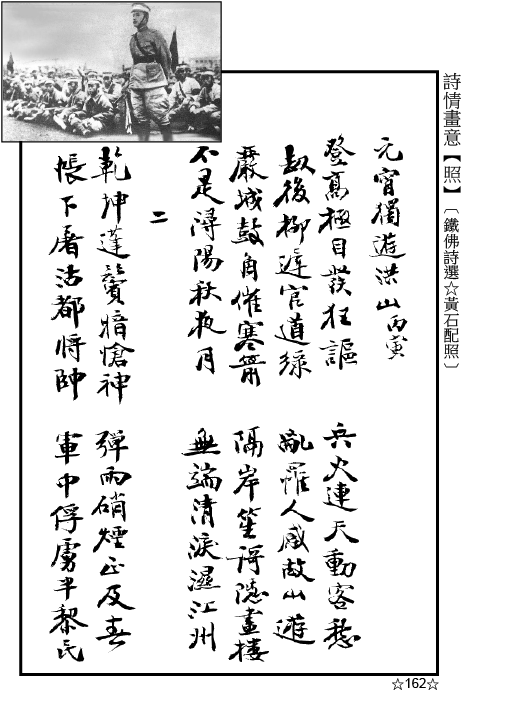 詩情畫意【照】〔鐵佛詩選☆黃石配照〕
元宵獨遊洪山 丙寅
登高極目發狂謳 兵火連天動客愁
劫後柳遮官道綠 亂罹人感故山遊
嚴城鼓角催寒箭 隔岸笙謌隱畫樓
不是潯陽秋夜月 無端清淚濕江州
二
乾坤蓬鬢暗愴神 彈雨硝煙正及春
帳下屠沽都將帥 軍中俘虜半黎民
☆162☆